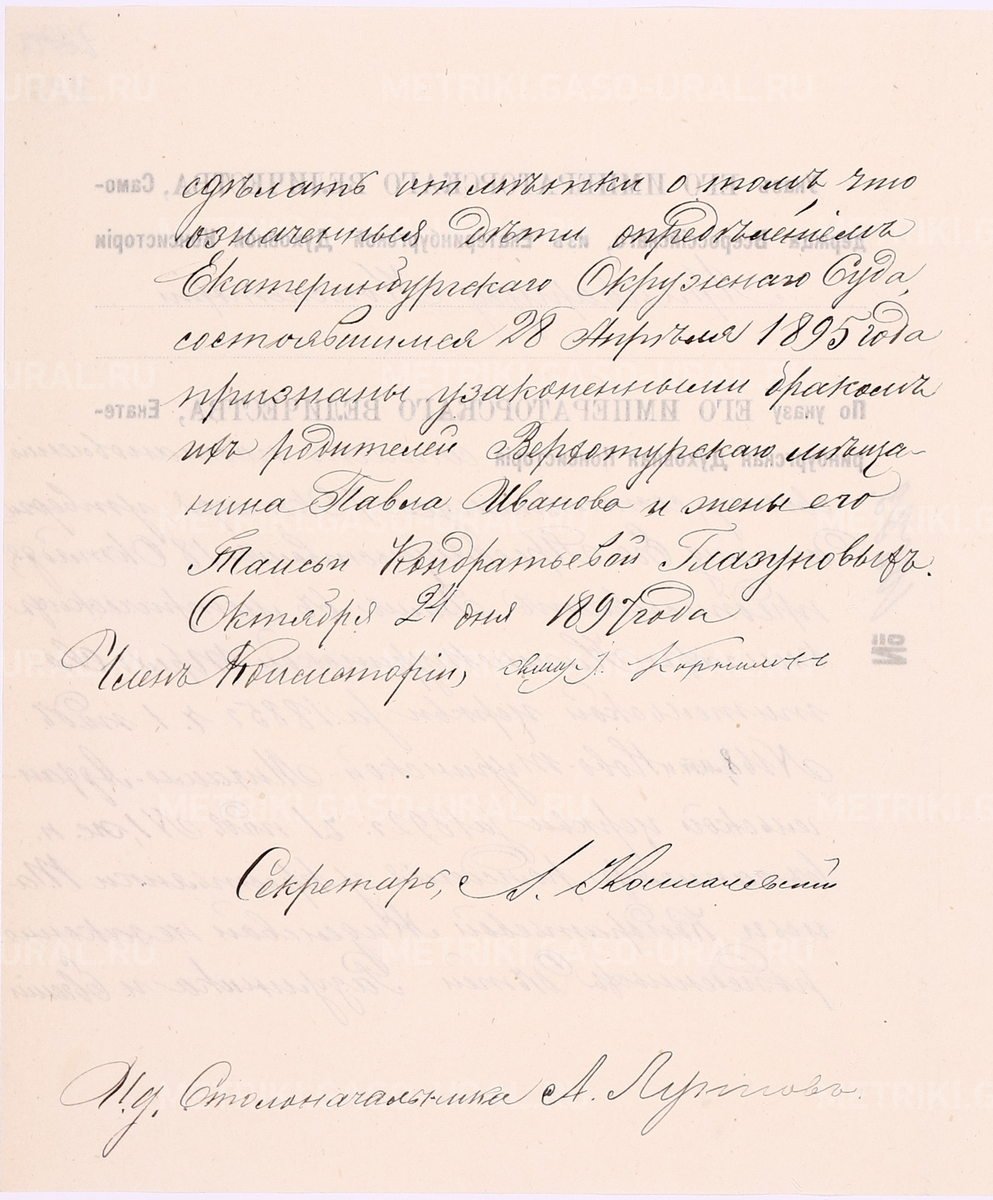 сдѣлать отмѣтки о томъ что
означенныя дѣти опредѣленіемъ
Екатеринбургскаго Окружнаго Суда,
состоявшимся 28 Апрѣля 1895 года
признаны узаконенными бракомъ
ихъ родителей Верхотурскаго мѣща-
нина Павла Иванова и жены его
Таисьи Кондратьевой Глазуновыхъ.
Октября 21 дня 1897 года
Членъ Консисторіи,
Секретарь, А.
И.д. Столоначальника А.
METRIKI.GASO-URAL.RU